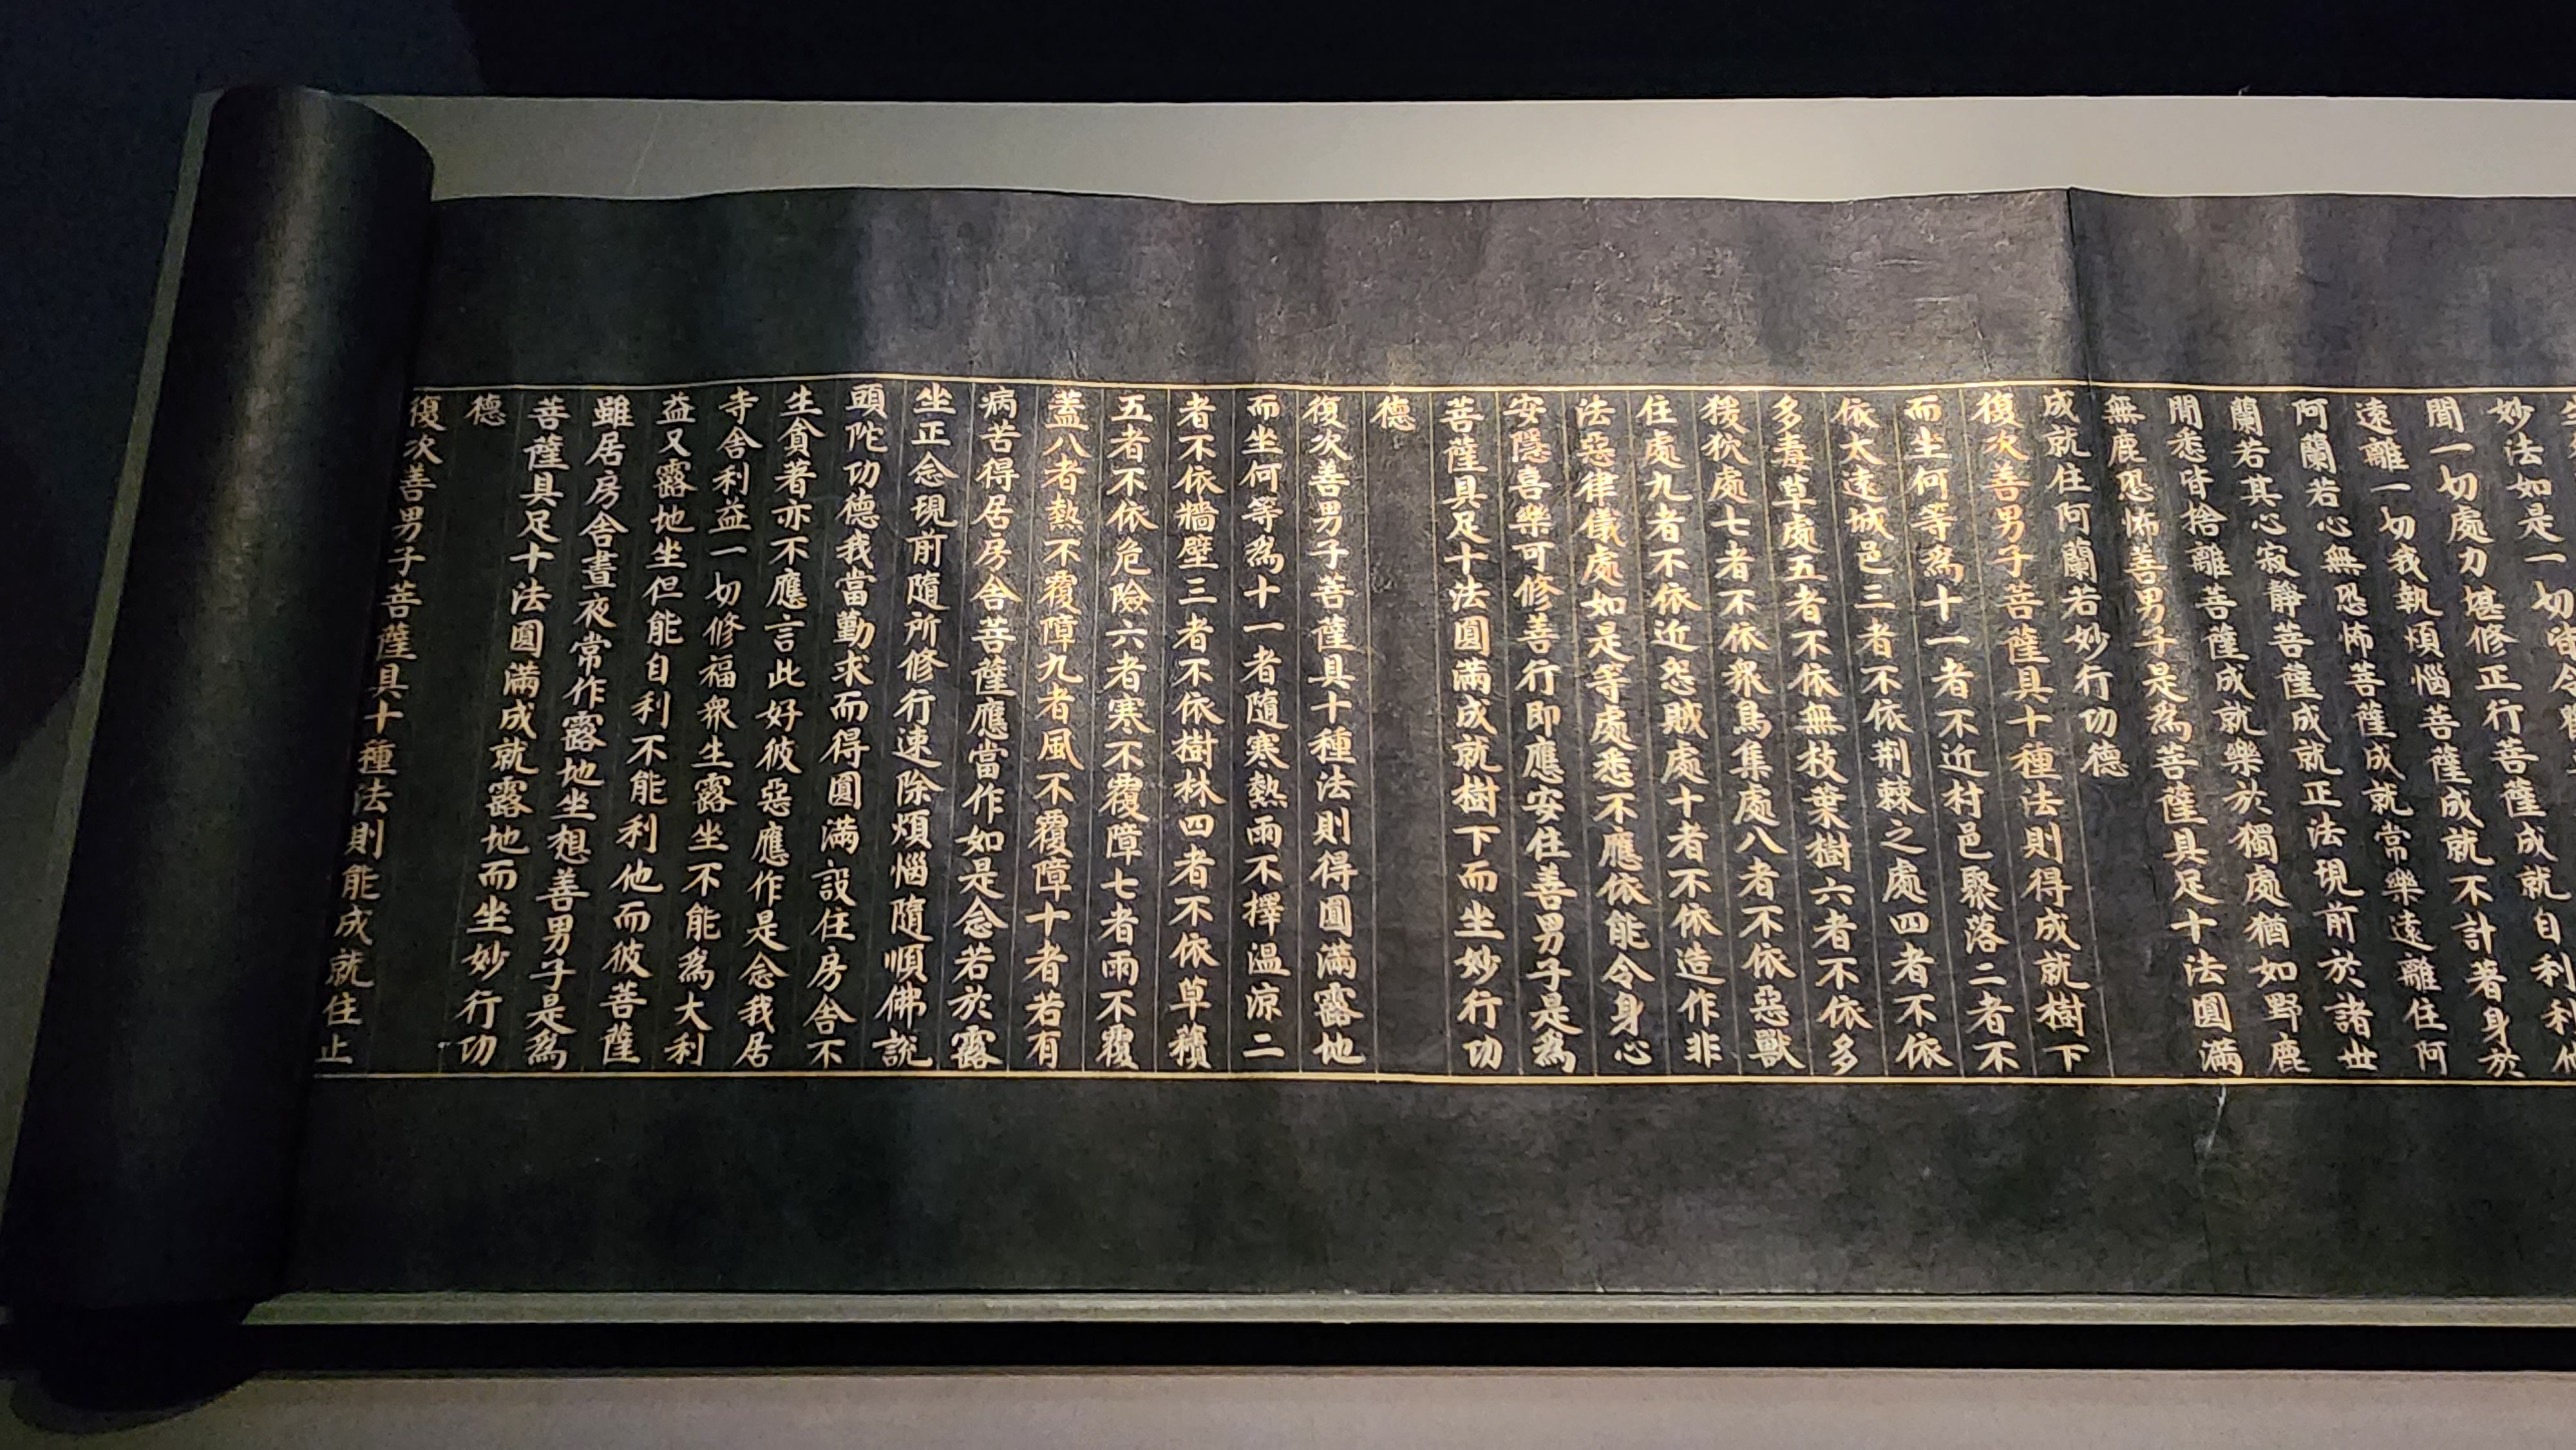 妙法如是一切
聞一切處力堪修正行菩薩成就不計著身於
遠離一切我執煩惱菩薩成就常樂遠離住阿
阿蘭若心無恐怖菩薩成就正法現前於諸世
蘭若其心寂靜菩薩成就樂於獨處猶如野鹿
閒悉皆捨離菩薩
無鹿恐怖善男子是為菩薩具足十法圓滿
成就住阿蘭若妙行功德
復次善男子菩薩具十種法則得成就樹下
而坐何等為十一者不近村邑聚落二者不
依太遠城邑三者不依荆棘之處四者不依
多毒草處五者不依無枝葉樹六者不依多
猨狖處七者不依衆鳥集處八者不依惡獸
住處九者不依近怨賊處十者不依造作非
法惡律儀處如是等處悉不應依能令身心
安隱喜樂可修善行即應安住善男子是為
菩薩具足十法圓滿成就樹下而坐妙行功
德
復次善男子菩薩具十種法則得圓滿露地
而坐何等為十一者隨寒熱雨不擇溫涼二
者不依牆壁三者不依樹林四者不依草積
五者不依危險六者寒不覆障七者雨不覆
蓋八者熱不覆障九者風不覆障十者若有
病苦得居房舍菩薩應當作如是念若於露
坐正念現前隨所修行速除煩惱隨順佛說
頭陀功德我當勤求而得圓滿設住房舍不
生貪著亦不應言此好彼惡應作是念我居
寺舍利益一切修福衆生露坐不能為大利
益又露地坐但能自利不能利他而彼菩薩
雖居房舍晝夜常作露地坐想善男子是為
菩薩具足十法圓滿成就露地而坐妙行功
德
復次善男子菩薩具十種法則能成就住止